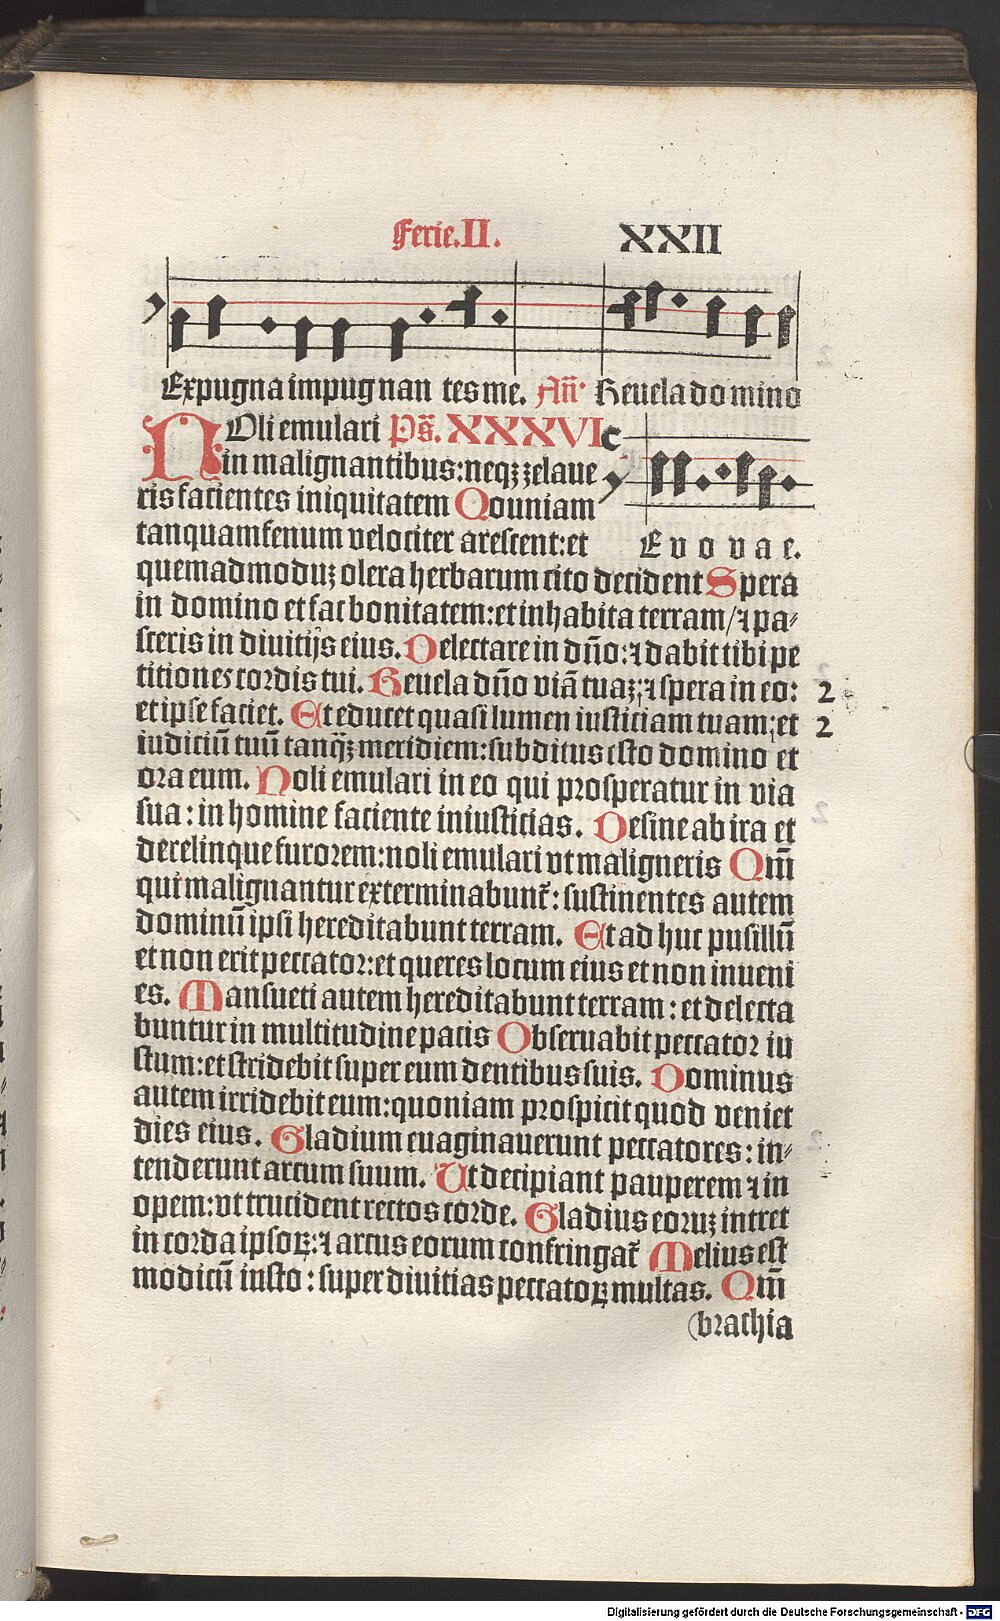 Ferie.II. XXII
Expugna impugnan tes me. Añ Reuela domino
NOli emulari Ps̃. XXXVI
in malignantibus: neqꝫ zelaue
ris facientes iniquitatem Qouniam
tanquam fenum velociter arescent: et
E v o v a e.
quemadmoduꝫ olera herbarum cito decident Spera
in domino et fac bonitatem: et inhabita terram/ ⁊ pa⸗
sceris in diuitijs eius. Delectare in dño: ⁊ dabit tibi pe
titiones cordis tui. Reuela dño viā tuaꝫ: ⁊ spera in eo: 2
et ipse faciet. Et educet quasi lumen iusticiam tuam: et 2
iudiciū tuū tanqꝫ̃ meridiem: subditus esto domino et
ora eum. Noli emulari in eo qui prosperatur in via
sua: in homine faciente iniusticias. Desine ab ira et
derelinque furorem: noli emulari vt maligneris Qm̃
qui malignantur exterminabunt᷑: sustinentes autem
dominū ipsi hereditabunt terram. Et ad huc pusillū
et non erit peccator: et queres locum eius et non inueni
es. Mansueti autem hereditabunt terram: et delecta
buntur in multitudine pacis Obseruabit peccator iu
stum: et stridebit super eum dentibus suis. Dominus
autem irridebit eum: quoniam prospicit quod veniet
dies eius. Gladium euaginauerunt peccatores: in⸗
tenderunt arcum suum. Ut decipiant pauperem ⁊ in
opem: vt trucident rectos corde. Gladius eoruꝫ intret
in corda ipsoꝝ: ⁊ arcus eorum confringat᷑ Melius est
modicū iusto: super diuitias peccatoꝝ multas. Qm̃
(brachia
Digitalisierung gefördert durch die Deutsche Forschungsgemeinschaft - DFG